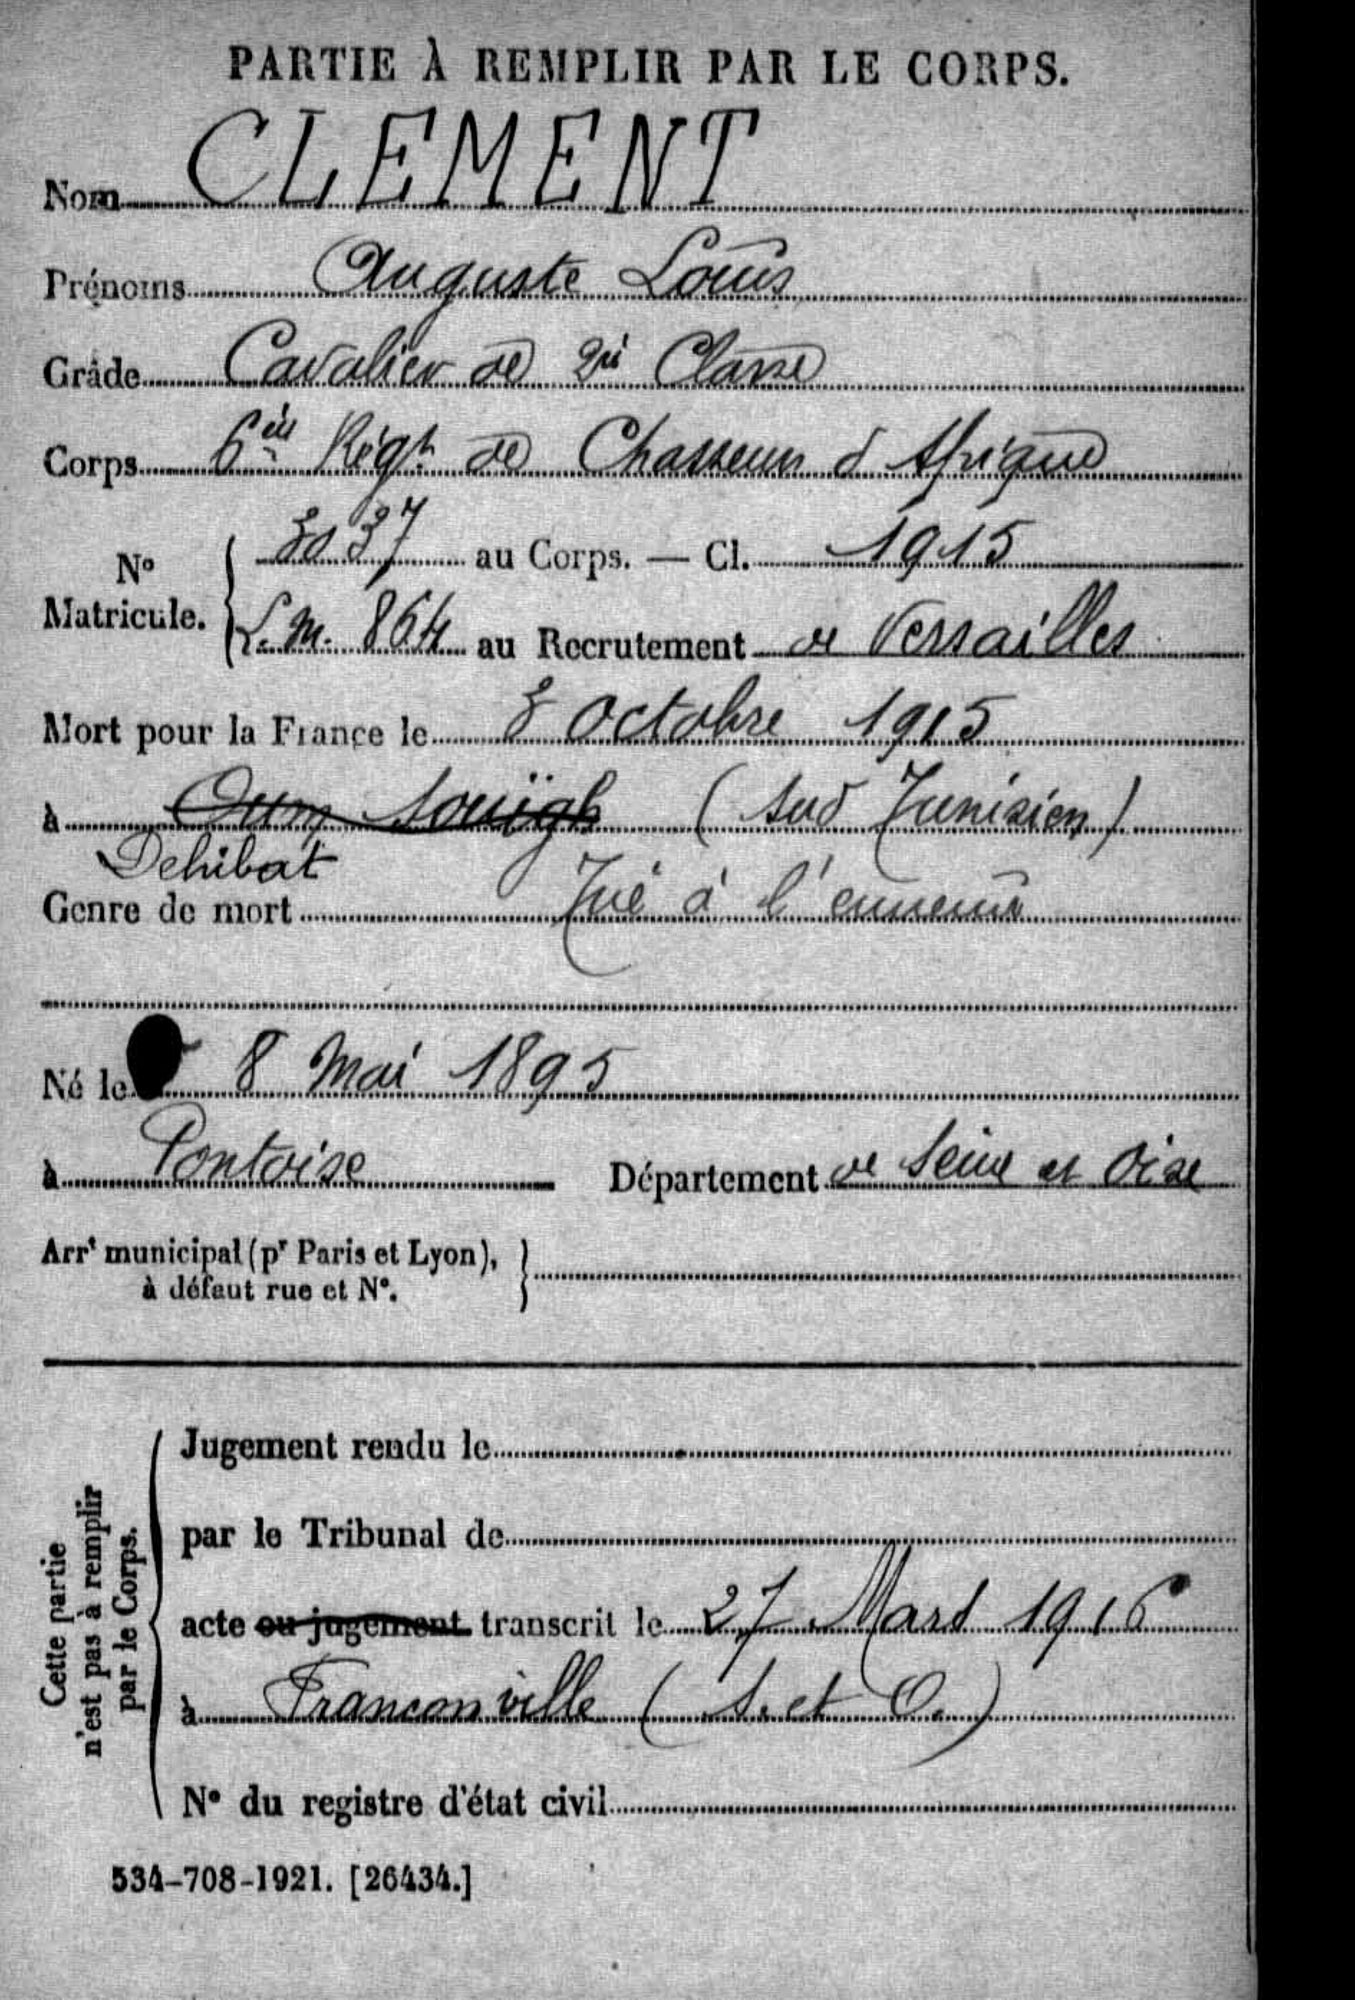 PARTIE À REMPLIR PAR LE CORPS.
Nom CLEMENT
Prénoms Auguste Louis
Grade Cavalier de 2è Classe
Corps 6è Régt de Chasseurs d'Afrique
N° Matricule. { 3037 au Corps. — Cl. 1915
L. M. 864 au Recrutement de Versailles
Mort pour la France le 8 Octobre 1915
à Oum Souïgh (Sud Tunisien)
Dehibat
Genre de mort Tué à l'ennemi
Né le 8 Mai 1895
à Pontoise Département de Seine et Oise
Arrt municipal (pr Paris et Lyon),
à défaut rue et N°.
Cette partie
n'est pas à remplir
par le Corps.
Jugement rendu le
par le Tribunal de
acte ou jugement transcrit le 27 Mars 1916
à Franconville (S. et O.)
N° du registre d'état civil
534-708-1921. [26434.]